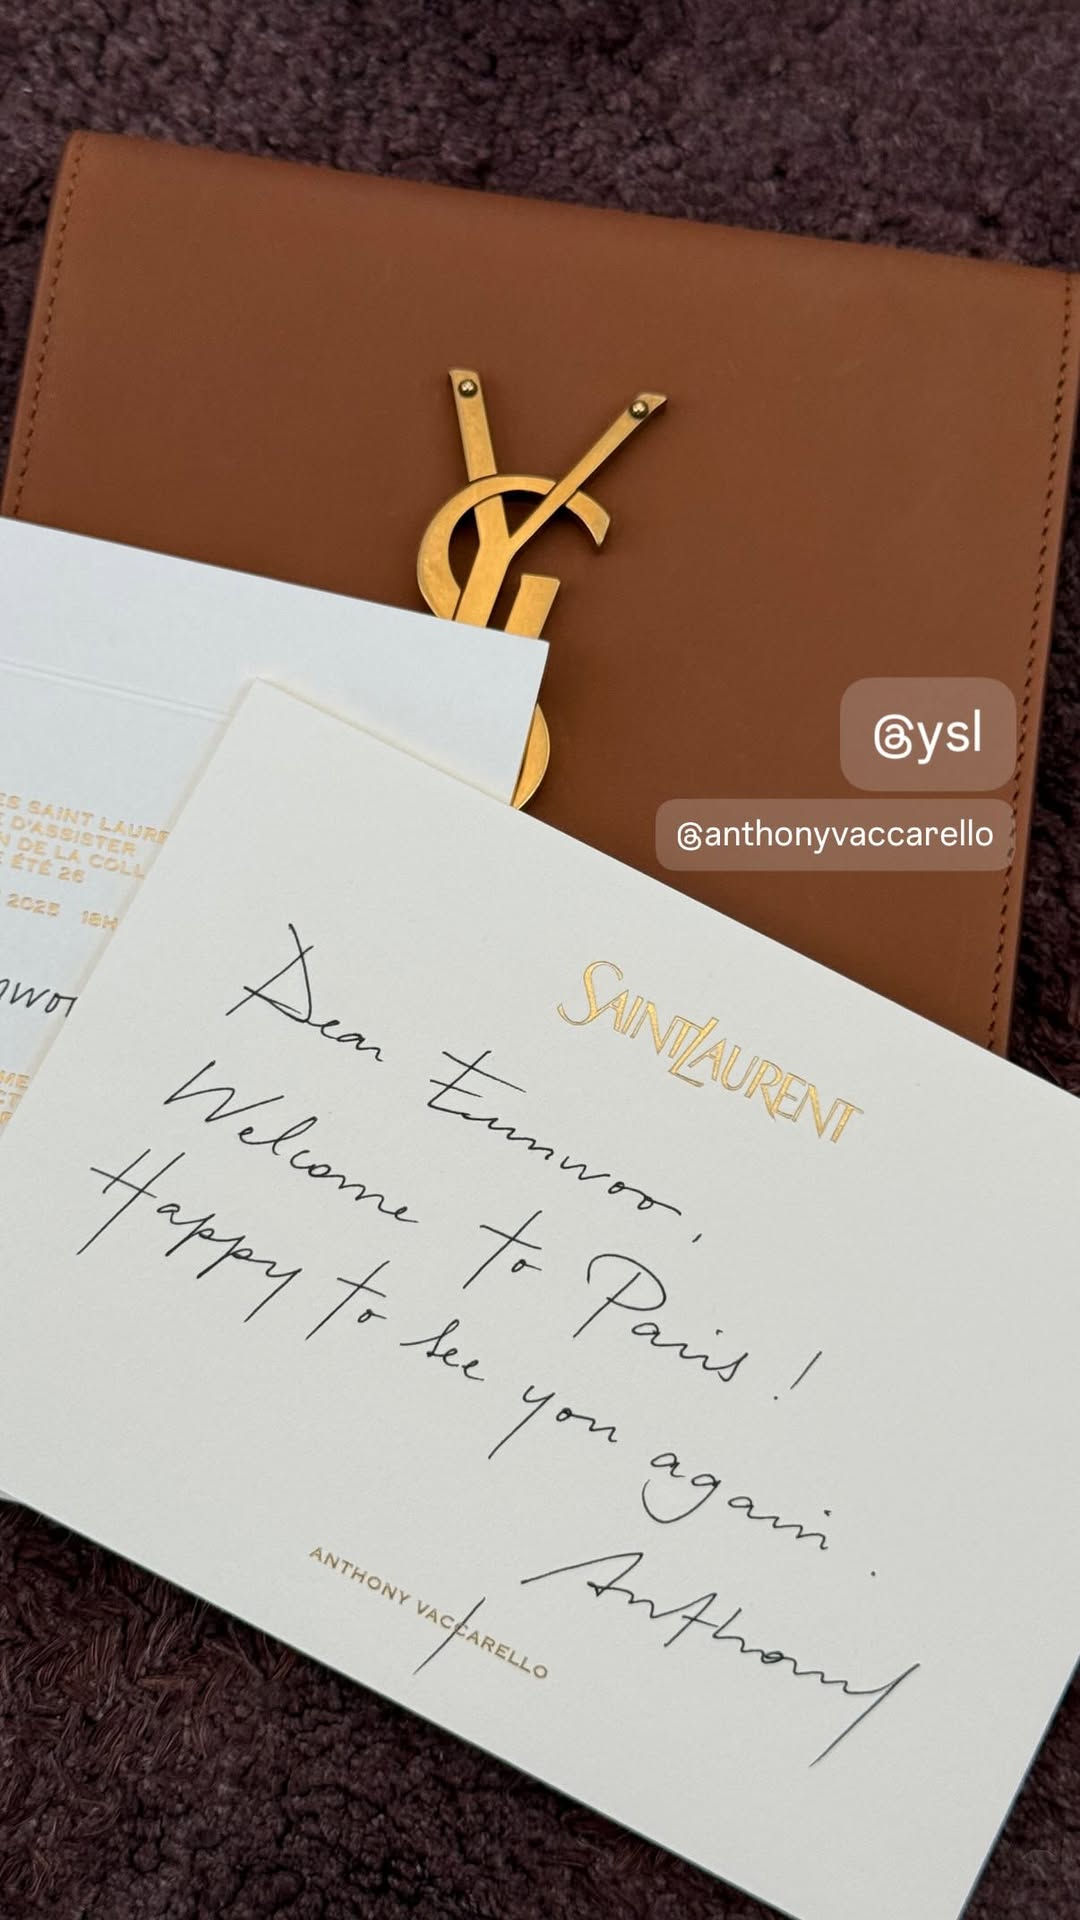 YSL
@ysl
@anthonyvaccarello
ES SAINT LAURE
E D'ASSISTER
N DE LA COLL
E ÉTÉ 26
2025 18H
SAINT LAURENT
Dear Eunwoo,
Welcome to Paris !
Happy to see you again.
Anthony
ANTHONY VACCARELLO